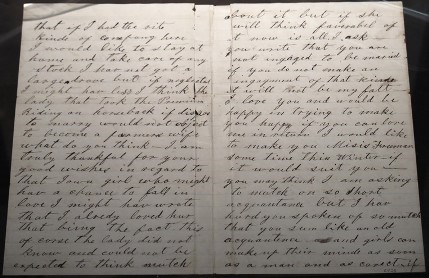 that if I had the rite
kinds of company here
I would like to stay at
home and take care of my
stock I least
a good deal but if neglected
I might hav less I think the
lady that took the Premium
Riding on horseback if
to marry would not object
to become a farmers wife
what do you think — I am
truly thankful for your
good wishes in regard to
that Iowa girl who might
hav a chance to fall in
love I might hav wrote
that I alredy loved hur
that being the fact this
of corse the lady did not
know and could not be
expected to think mutch
about it but if she
will think favorabel of
it now is all I ask
you write that you are
not engaged to be marid
if you do not make an
engagment of that kinde
it will not be my falt
I love you and would be
happy in trying to make
you happy if you can love
me in return I would like
to make you Misis
some time this Winter if
it would suit you
you may think I am asking
to mutch on so short
acquantance but I hav
hurd you spoken of so mutch
that you seem like an old
acquantance and girls can
make up their minds as soon
as a man and as corect if